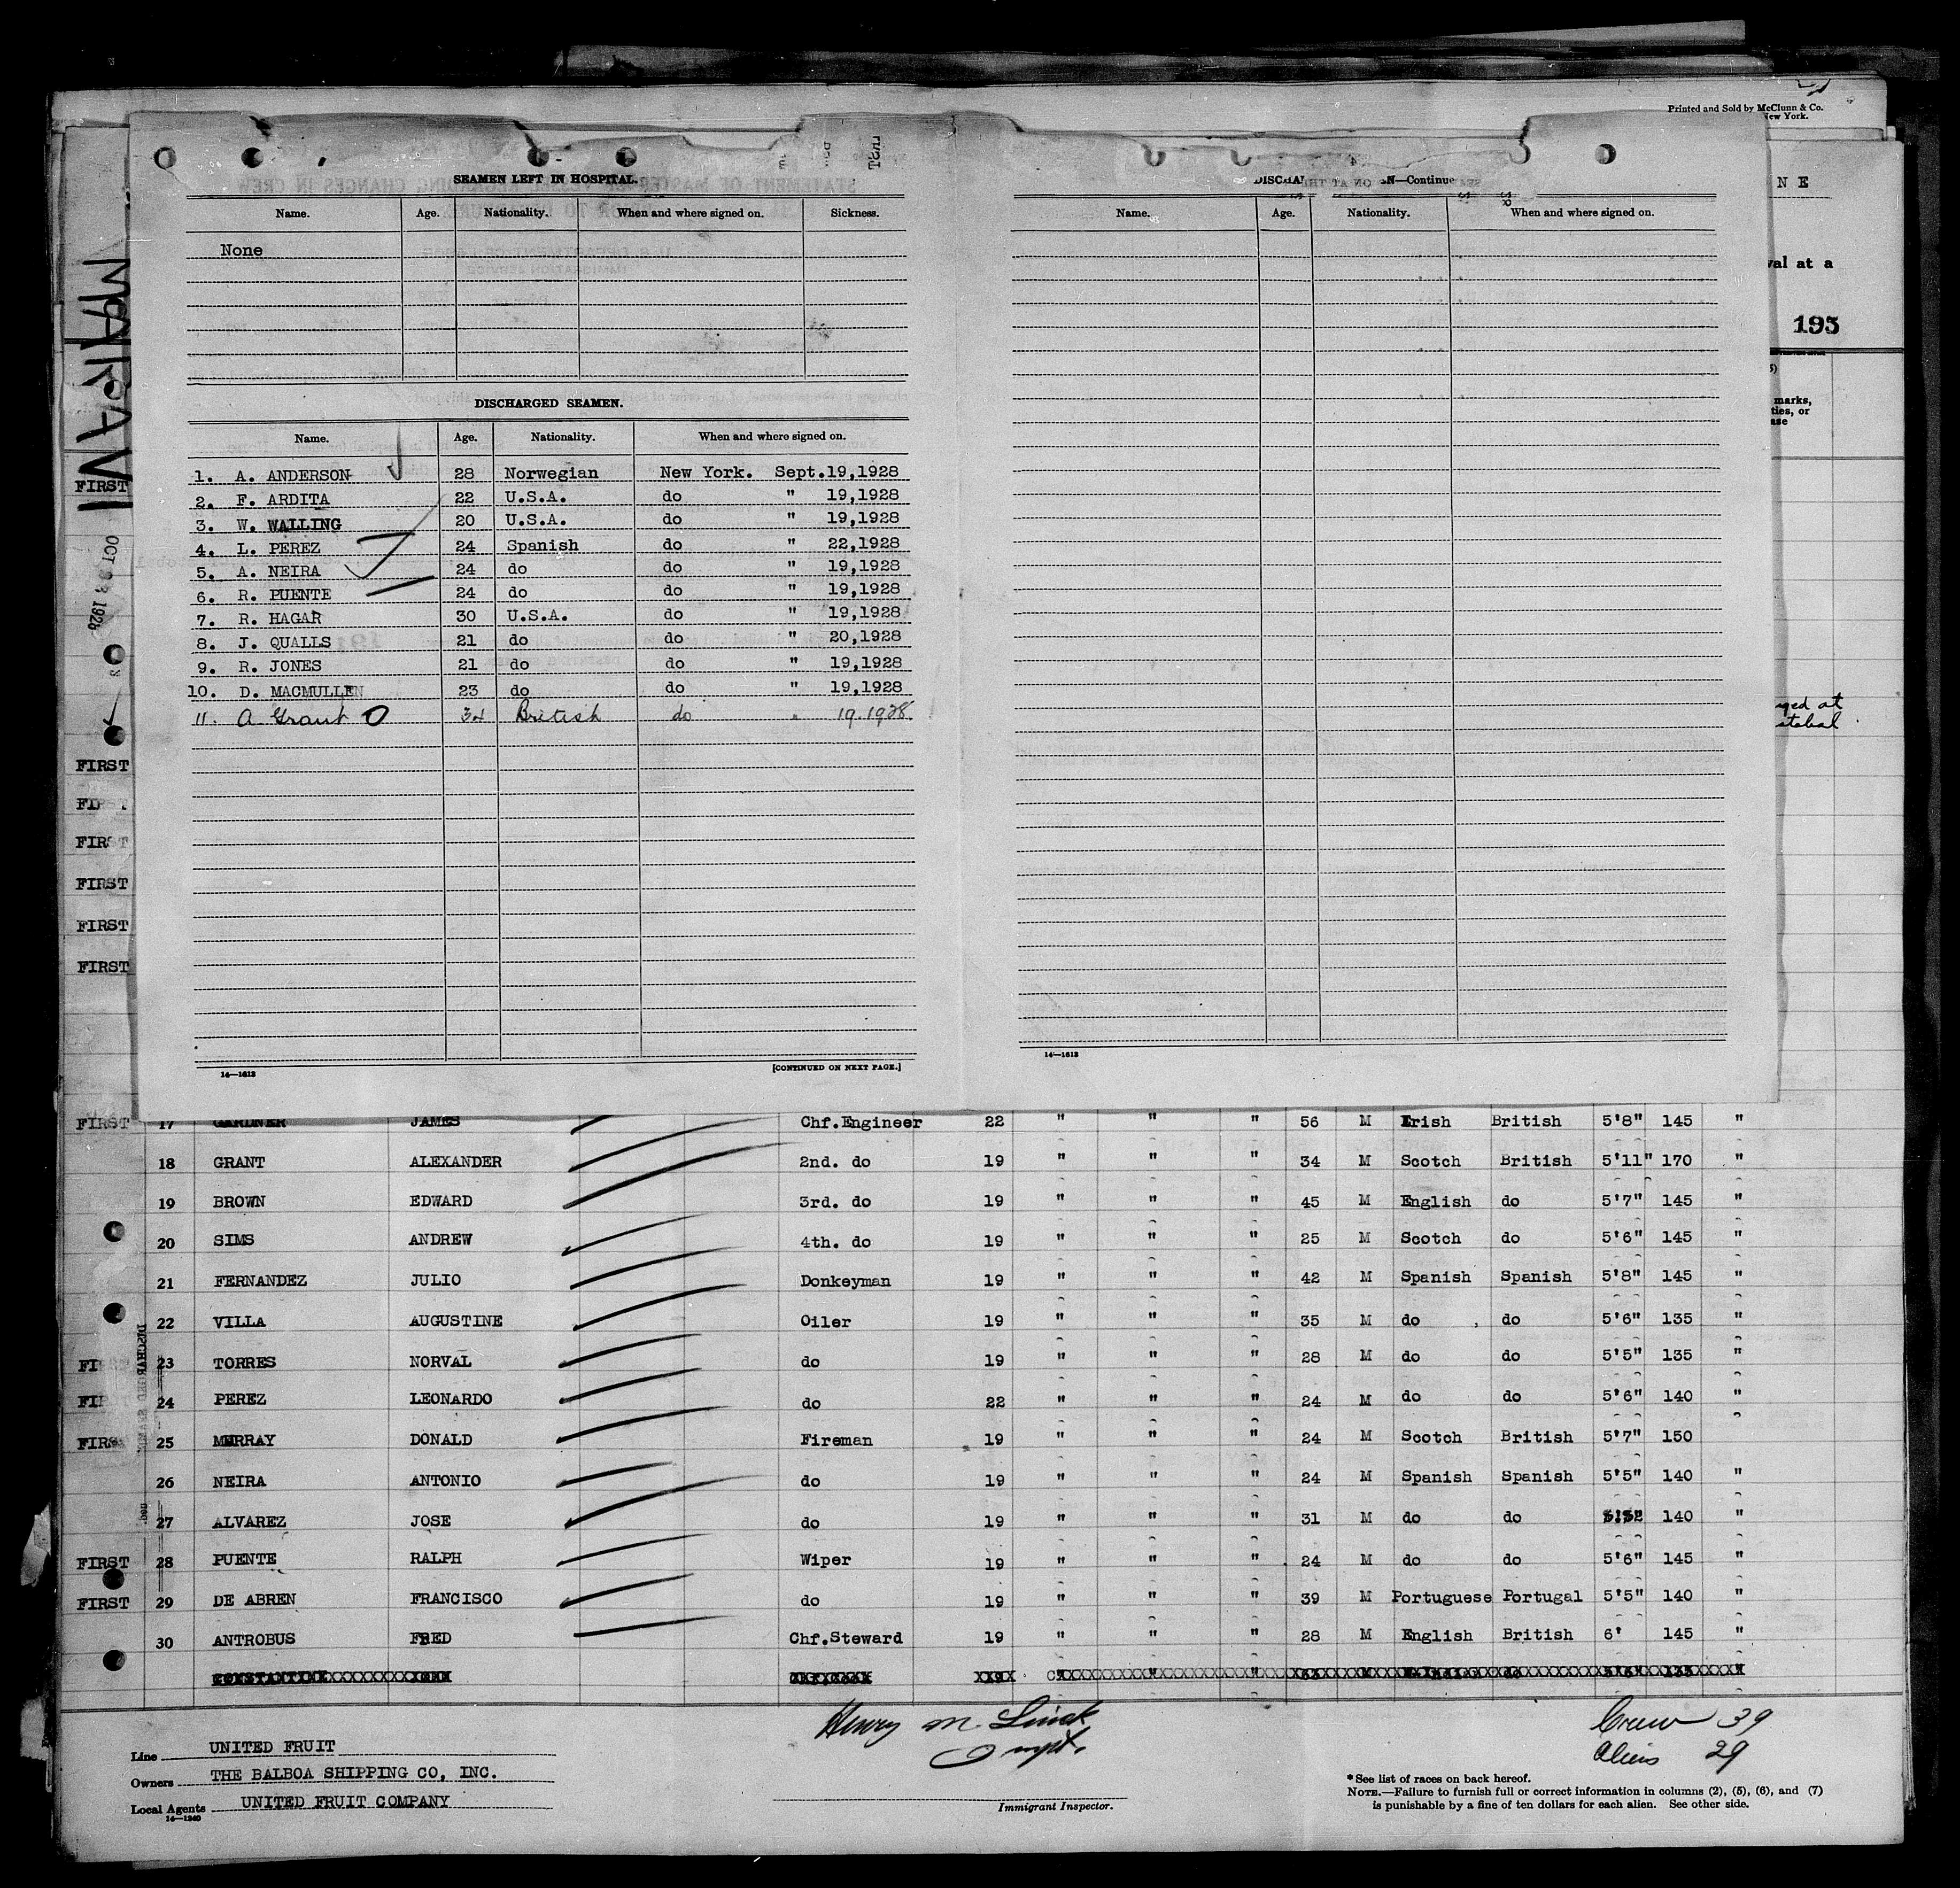 Printed and Sold by McClunn & Co.
New York.
SEAMEN LEFT IN HOSPITAL.
Name. Age. Nationality. When and where signed on. Sickness.
None
DISCHARGED SEAMEN.
Name. Age. Nationality. When and where signed on.
1. A. ANDERSON 28 Norwegian New York. Sept.19,1928
2. F. ARDITA 22 U.S.A. do " 19,1928
3. W. WALLING 20 U.S.A. do " 19,1928
4. L. PEREZ 24 Spanish do " 22,1928
5. A. NEIRA 24 do do " 19,1928
6. R. PUENTE 24 do do " 19,1928
7. R. HAGAR 30 U.S.A. do " 19,1928
8. J. QUALLS 21 do do " 20,1928
9. R. JONES 21 do do " 19,1928
10. D. MACMULLEN 23 do do " 19,1928
11. A Grant O 34 British do " 19.1928.
14—1613 [CONTINUED ON NEXT PAGE.]
N—Continue
Name. Age. Nationality. When and where signed on.
14—1613
N E
val at a
193
marks,
ties, or
ase
ged at
stobal
FIRST
OCT 23 1928
FIRST
FIRST
FIRST
FIRST
FIRST
FIRST 17 GARDNER JAMES Chf.Engineer 22 " " " 56 M Irish British 5'8" 145 "
18 GRANT ALEXANDER 2nd. do 19 " " " 34 M Scotch British 5'11" 170 "
19 BROWN EDWARD 3rd. do 19 " " " 45 M English do 5'7" 145 "
20 SIMS ANDREW 4th. do 19 " " " 25 M Scotch do 5'6" 145 "
21 FERNANDEZ JULIO Donkeyman 19 " " " 42 M Spanish Spanish 5'8" 145 "
22 VILLA AUGUSTINE Oiler 19 " " " 35 M do do 5'6" 135 "
23 TORRES NORVAL do 19 " " " 28 M do do 5'5" 135 "
24 PEREZ LEONARDO do 22 " " " 24 M do do 5'6" 140 "
FIRST 25 MURRAY DONALD Fireman 19 " " " 24 M Scotch British 5'7" 150
26 NEIRA ANTONIO do 19 " " " 24 M Spanish Spanish 5'5" 140 "
27 ALVAREZ JOSE do 19 " " " 31 M do do 140 "
FIRST 28 PUENTE RALPH Wiper 19 " " " 24 M do do 5'6" 145 "
FIRST 29 DE ABREN FRANCISCO do 19 " " " 39 M Portuguese Portugal 5'5" 140 "
30 ANTROBUS FRED Chf.Steward 19 " " " 28 M English British 6' 145 "
Henry M. Linck
Inspt.
Immigrant Inspector.
Crew 39
Aliens 29
Line UNITED FRUIT
Owners THE BALBOA SHIPPING CO, INC.
Local Agents UNITED FRUIT COMPANY
14—1240
* See list of races on back hereof.
NOTE.—Failure to furnish full or correct information in columns (2), (5), (6), and (7)
is punishable by a fine of ten dollars for each alien. See other side.